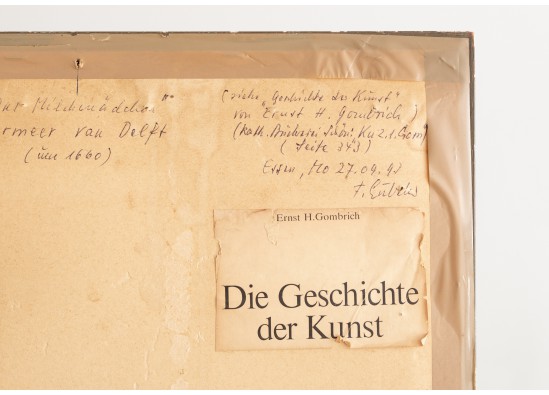 Milchmädchen"
van Delft
(um 1660)
(siehe „Geschichte der Kunst"
von Ernst H. Gombrich)
(Kath. Bücherei
(Seite 343)
Essen, Mo 27.09.93
Ernst H.Gombrich
Die Geschichte
der Kunst